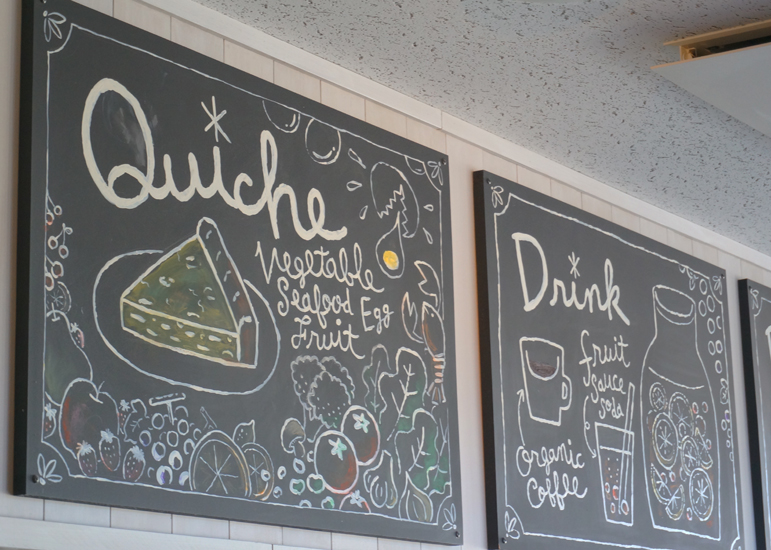 Quiche
Vegetable
Seafood Egg
Fruit
Drink
fruit
sauce
soda
organic
coffee